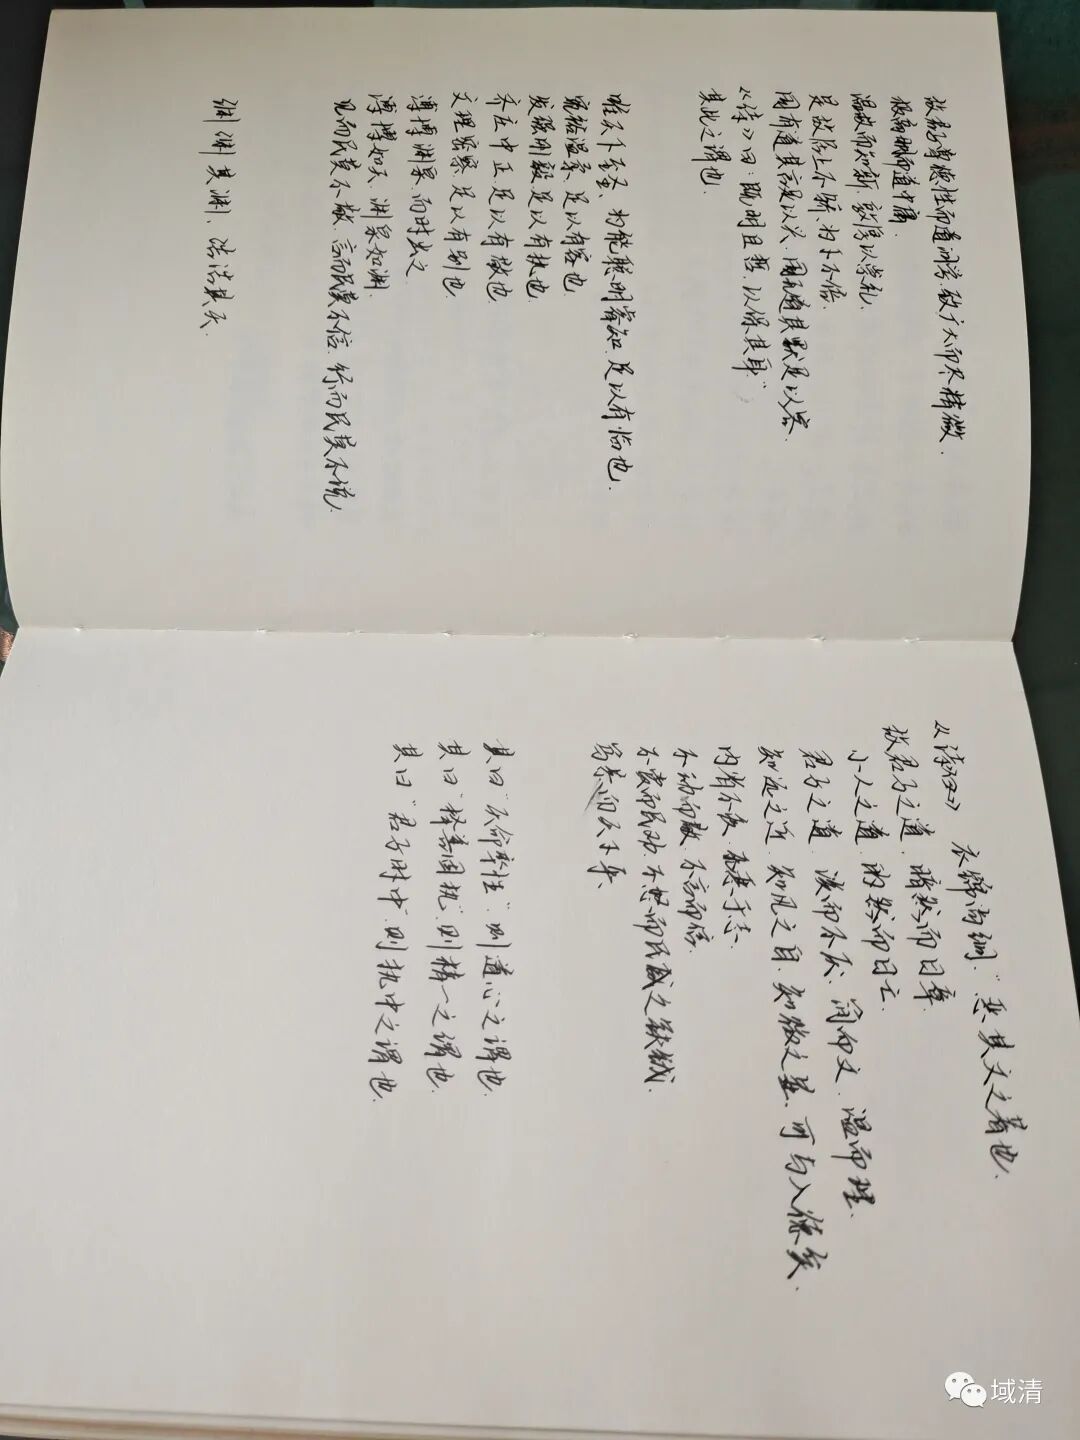 故君子尊德性而道问学,致广大而尽精微.
极高明而道中庸.
温故而知新,敦厚以崇礼.
是故居上不骄,为下不倍.
国有道其言足以兴,国无道其默足以容.
《诗》曰:既明且哲,以保其身."
其此之谓也.
唯天下至圣,为能聪明睿知,足以有临也.
宽裕温柔,足以有容也.
发强刚毅足以有执也.
齐庄中正足以有敬也.
文理密察,足以有别也.
溥博渊泉,而时出之.
溥博如天,渊泉如渊.
见而民莫不敬,言而民莫不信,行而民莫不说.
渊渊其渊,浩浩其天.
《诗曰》衣锦尚絅,"恶其文之著也.
故君子之道,暗然而日章.
小人之道,的然而日亡.
君子之道,淡而不厌,简而文,温而理.
知远之近,知风之自,知微之显,可与入德矣.
内省不疚,无恶于志.
不动而敬,不言而信.
不赏而民劝,不怒而民威之鈇钺.
笃恭而天下平.
其曰"天命率性",则道心之谓也.
其曰"择善固执",则精一之谓也.
其曰"君子时中",则执中之谓也.
域清